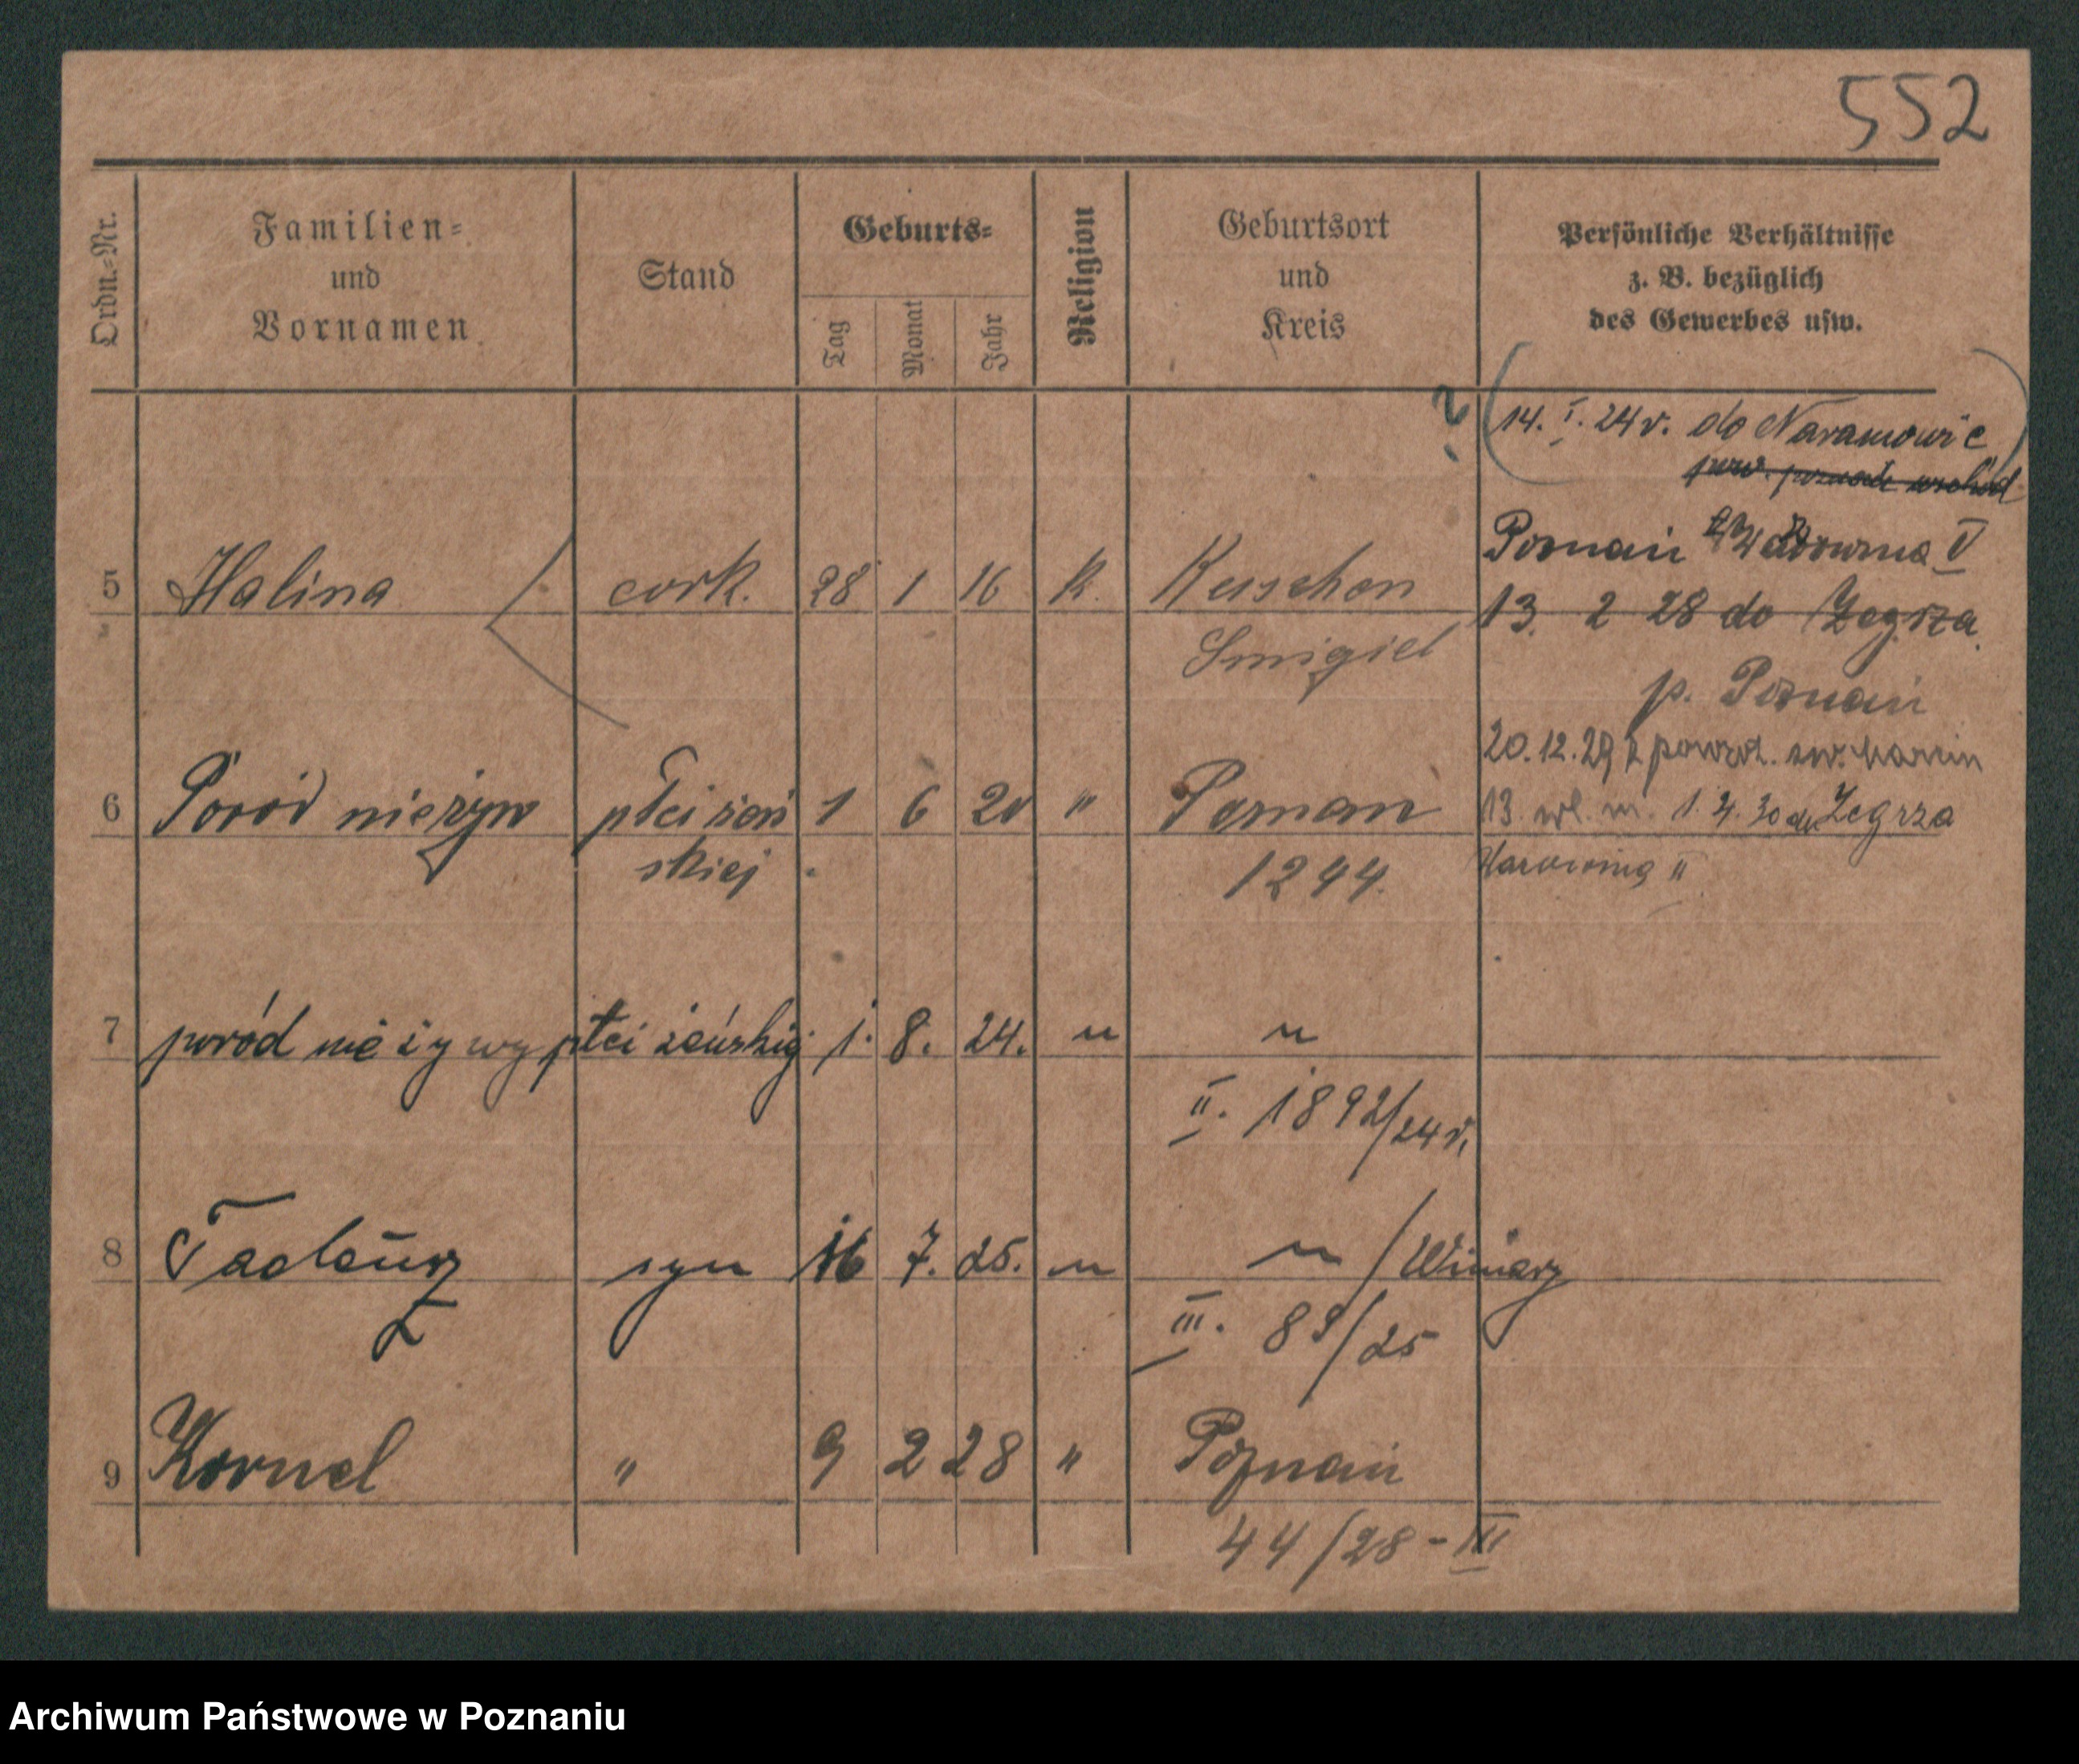 552
Ordn.=Nr.
Familien=
und
Vornamen
Stand
Geburts=
Tag
Monat
Jahr
Religion
Geburtsort
und
Kreis
Persönliche Verhältnisse
z. B. bezüglich
des Gewerbes usw.
? (14. I. 24 r. do Naramowic)
Poznań V
5 Halina córk. 28 1 16 K. Kuschen
13. 2 28 do Żegrza
Smigiel
p. Poznań
20.12.29 z powrot. św. Marcin
6 Poród nieżyw płci żeń 1 6 20 " Poznań
13. wł. m. 1.4.30 do Żegrza
skiej
1244.
II
7 poród nieżywy płci żeńskiej 1. 8. 24. " "
II. 1892/24 r.
8 Tadeusz syn 16 7. 25. " " / Winiary
III. 89/25
9 Kornel " 9 2 28 " Poznań
44/28 - III
Archiwum Państwowe w Poznaniu